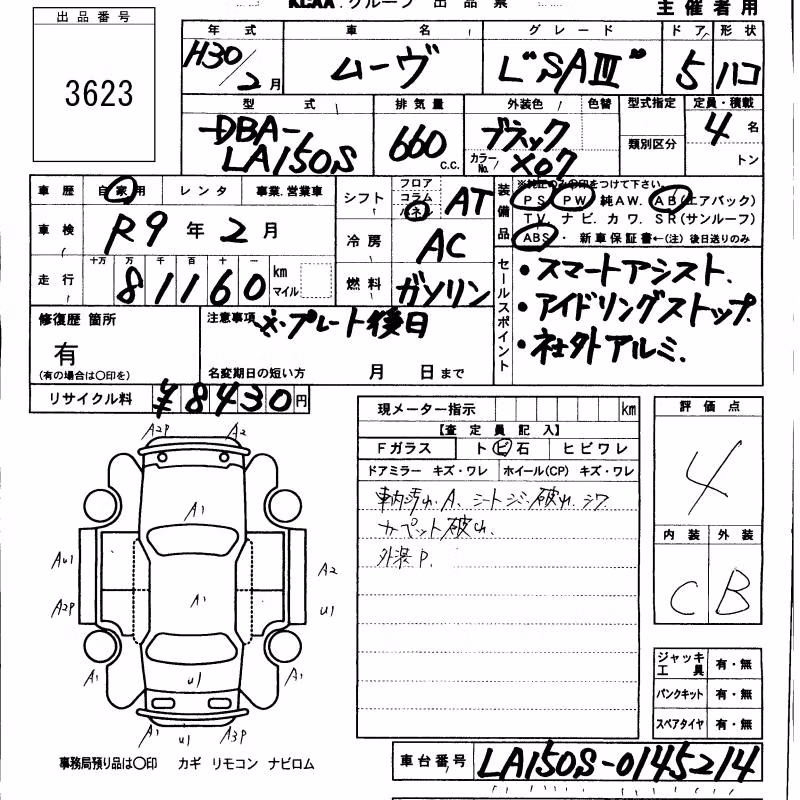 KCAA.グループ 出品票
主催者用
出品番号
3623
年式 車名 グレード ドア 形状
H30/2月 ムーヴ L"SAⅢ" 5 ハコ
型式 排気量 外装色 色替 型式指定 定員・積載
DBA-
LA150S 660 c.c. ブラック
カラーNo. X07 類別区分 4名
トン
車歴 自家用 レンタ 事業.営業車
シフト フロア コラム パネル AT
装備品
※純正のみ○印をつけて下さい。
PS PW 純AW. AB(エアバック)
TV. ナビ. カワ. SR(サンルーフ)
ABS・新車保証書←(注)後日送りのみ
車検 R9年2月
冷房 AC
走行 十万 万 千 百 十 一
81160 km マイル
燃料 ガソリン
セールスポイント
・スマートアシスト.
・アイドリングストップ.
・社外アルミ.
修復歴 箇所
有
(有の場合は○印を)
注意事項 ※・プレート後日
名変期日の短い方 月 日まで
リサイクル料 ¥8430円
現メーター指示 km
【査定員記入】
Fガラス ト ビ 石 ヒビワレ
ドアミラー キズ・ワレ ホイール(CP) キズ・ワレ
車内汚れ A、シートジミ 破れ. シワ
カーペット破れ.
外装 P.
評価点
4
内装 外装
C B
A2P A2
A1
AU1 A2
A1
A2P U1
A1 U1 A1
A1 U1 A3P
ジャッキ 工具 有・無
パンクキット 有・無
スペアタイヤ 有・無
事務局預り品は○印 カギ リモコン ナビロム
車台番号 LA150S-0145214